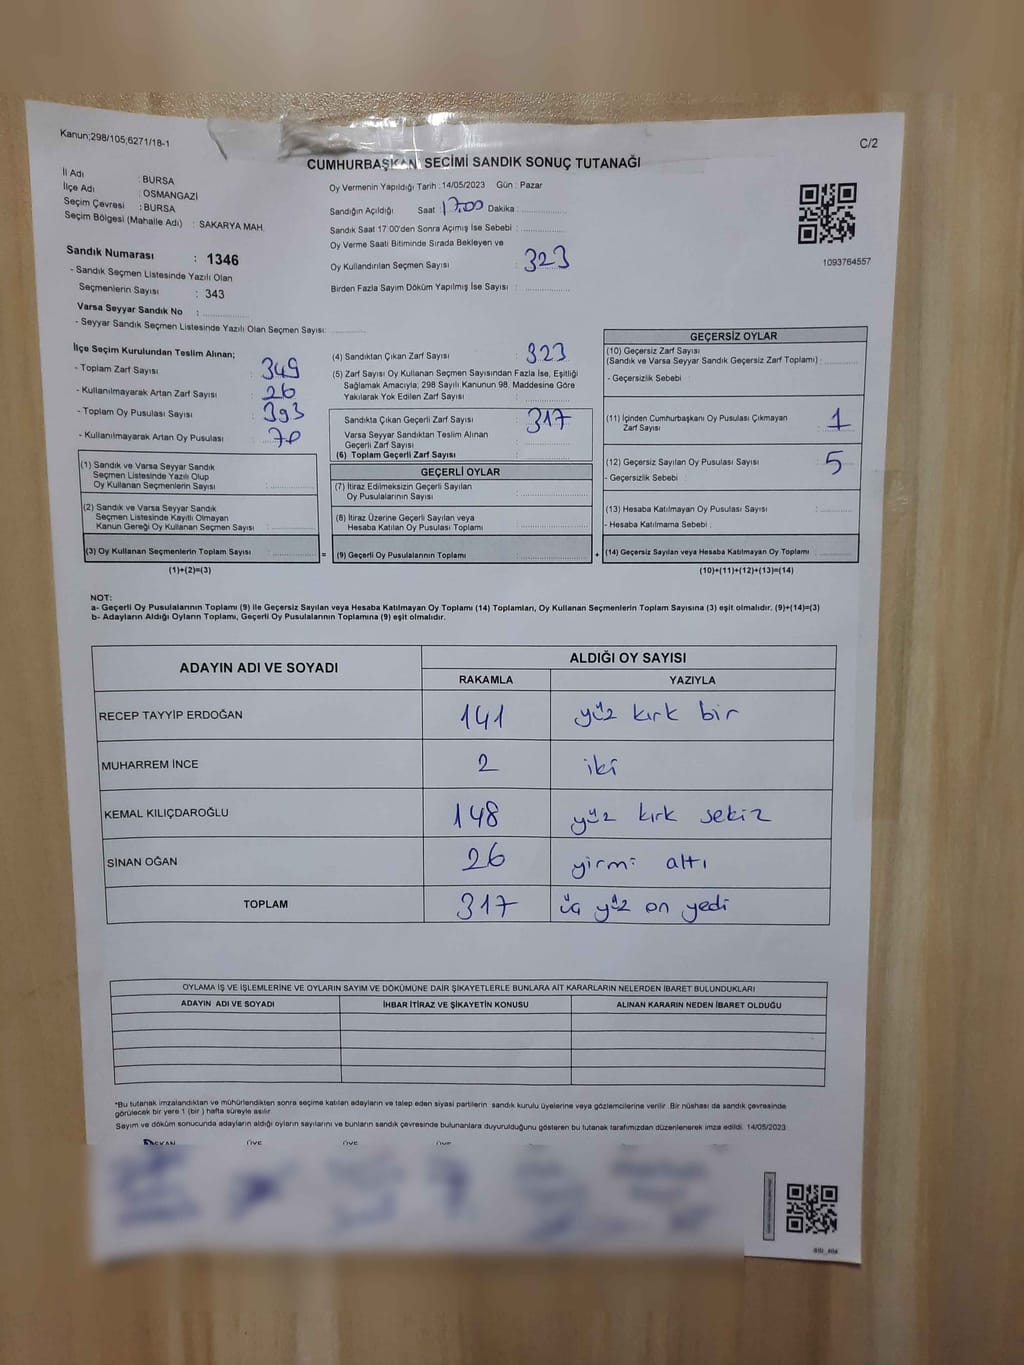 Kanun;298/105;6271/18-1
C/2
CUMHURBAŞKAN SECİMİ SANDIK SONUÇ TUTANAĞI
İl Adı : BURSA
İlçe Adı : OSMANGAZİ
Seçim Çevresi : BURSA
Seçim Bölgesi (Mahalle Adı) : SAKARYA MAH.
Oy Vermenin Yapıldığı Tarih : 14/05/2023 Gün : Pazar
Sandığın Açıldığı Saat 17.00 Dakika :
Sandık Saat 17:00'den Sonra Açımış İse Sebebi :
Oy Verme Saati Bitiminde Sırada Bekleyen ve
Oy Kullandırılan Seçmen Sayısı : 323
Birden Fazla Sayım Döküm Yapılmış İse Sayısı :
1093764557
Sandık Numarası : 1346
- Sandık Seçmen Listesinde Yazılı Olan
Seçmenlerin Sayısı : 343
Varsa Seyyar Sandık No :
- Seyyar Sandık Seçmen Listesinde Yazılı Olan Seçmen Sayısı:
İlçe Seçim Kurulundan Teslim Alınan;
- Toplam Zarf Sayısı : 349
- Kullanılmayarak Artan Zarf Sayısı : 26
- Toplam Oy Pusulası Sayısı : 393
- Kullanılmayarak Artan Oy Pusulası :
(1) Sandık ve Varsa Seyyar Sandık
Seçmen Listesinde Yazılı Olup
Oy Kullanan Seçmenlerin Sayısı :
(2) Sandık ve Varsa Seyyar Sandık
Seçmen Listesinde Kayıtlı Olmayan
Kanun Gereği Oy Kullanan Seçmen Sayısı :
(3) Oy Kullanan Seçmenlerin Toplam Sayısı :
(1)+(2)=(3)
(4) Sandıktan Çıkan Zarf Sayısı : 323
(5) Zarf Sayısı Oy Kullanan Seçmen Sayısından Fazla İse, Eşitliği
Sağlamak Amacıyla; 298 Sayılı Kanunun 98. Maddesine Göre
Yakılarak Yok Edilen Zarf Sayısı :
Sandıkta Çıkan Geçerli Zarf Sayısı : 317
Varsa Seyyar Sandıktan Teslim Alınan
Geçerli Zarf Sayısı :
(6) Toplam Geçerli Zarf Sayısı :
GEÇERLİ OYLAR
(7) İtiraz Edilmeksizin Geçerli Sayılan
Oy Pusulalarının Sayısı :
(8) İtiraz Üzerine Geçerli Sayılan veya
Hesaba Katılan Oy Pusulası Toplamı :
= (9) Geçerli Oy Pusulalarının Toplamı :
GEÇERSİZ OYLAR
(10) Geçersiz Zarf Sayısı
(Sandık ve Varsa Seyyar Sandık Geçersiz Zarf Toplamı) :
- Geçersizlik Sebebi :
(11) İçinden Cumhurbaşkanı Oy Pusulası Çıkmayan
Zarf Sayısı : 1
(12) Geçersiz Sayılan Oy Pusulası Sayısı : 5
- Geçersizlik Sebebi :
(13) Hesaba Katılmayan Oy Pusulası Sayısı :
- Hesaba Katılmama Sebebi :
+ (14) Geçersiz Sayılan veya Hesaba Katılmayan Oy Toplamı :
(10)+(11)+(12)+(13)=(14)
NOT:
a- Geçerli Oy Pusulalarının Toplamı (9) ile Geçersiz Sayılan veya Hesaba Katılmayan Oy Toplamı (14) Toplamları, Oy Kullanan Seçmenlerin Toplam Sayısına (3) eşit olmalıdır. (9)+(14)=(3)
b- Adayların Aldığı Oyların Toplamı, Geçerli Oy Pusulalarının Toplamına (9) eşit olmalıdır.
ADAYIN ADI VE SOYADI
ALDIĞI OY SAYISI
RAKAMLA YAZIYLA
RECEP TAYYİP ERDOĞAN 141 yüz kırk bir
MUHARREM İNCE 2 iki
KEMAL KILIÇDAROĞLU 148 yüz kırk sekiz
SİNAN OĞAN 26 yirmi altı
TOPLAM 317 üç yüz on yedi
OYLAMA İŞ VE İŞLEMLERİNE VE OYLARIN SAYIM VE DÖKÜMÜNE DAİR ŞİKAYETLERLE BUNLARA AİT KARARLARIN NELERDEN İBARET BULUNDUKLARI
ADAYIN ADI VE SOYADI İHBAR İTİRAZ VE ŞİKAYETİN KONUSU ALINAN KARARIN NEDEN İBARET OLDUĞU
*Bu tutanak imzalandıktan ve mühürlendikten sonra seçime katılan adayların ve talep eden siyasi partilerin sandık kurulu üyelerine veya gözlemcilerine verilir. Bir nüshası da sandık çevresinde
görülecek bir yere 1 (bir) hafta süreyle asılır.
Sayım ve döküm sonucunda adayların aldığı oyların sayılarını ve bunların sandık çevresinde bulunanlara duyurulduğunu gösteren bu tutanak tarafımızdan düzenlenerek imza edildi. 14/05/2023
BAŞKAN ÜYE ÜYE ÜYE